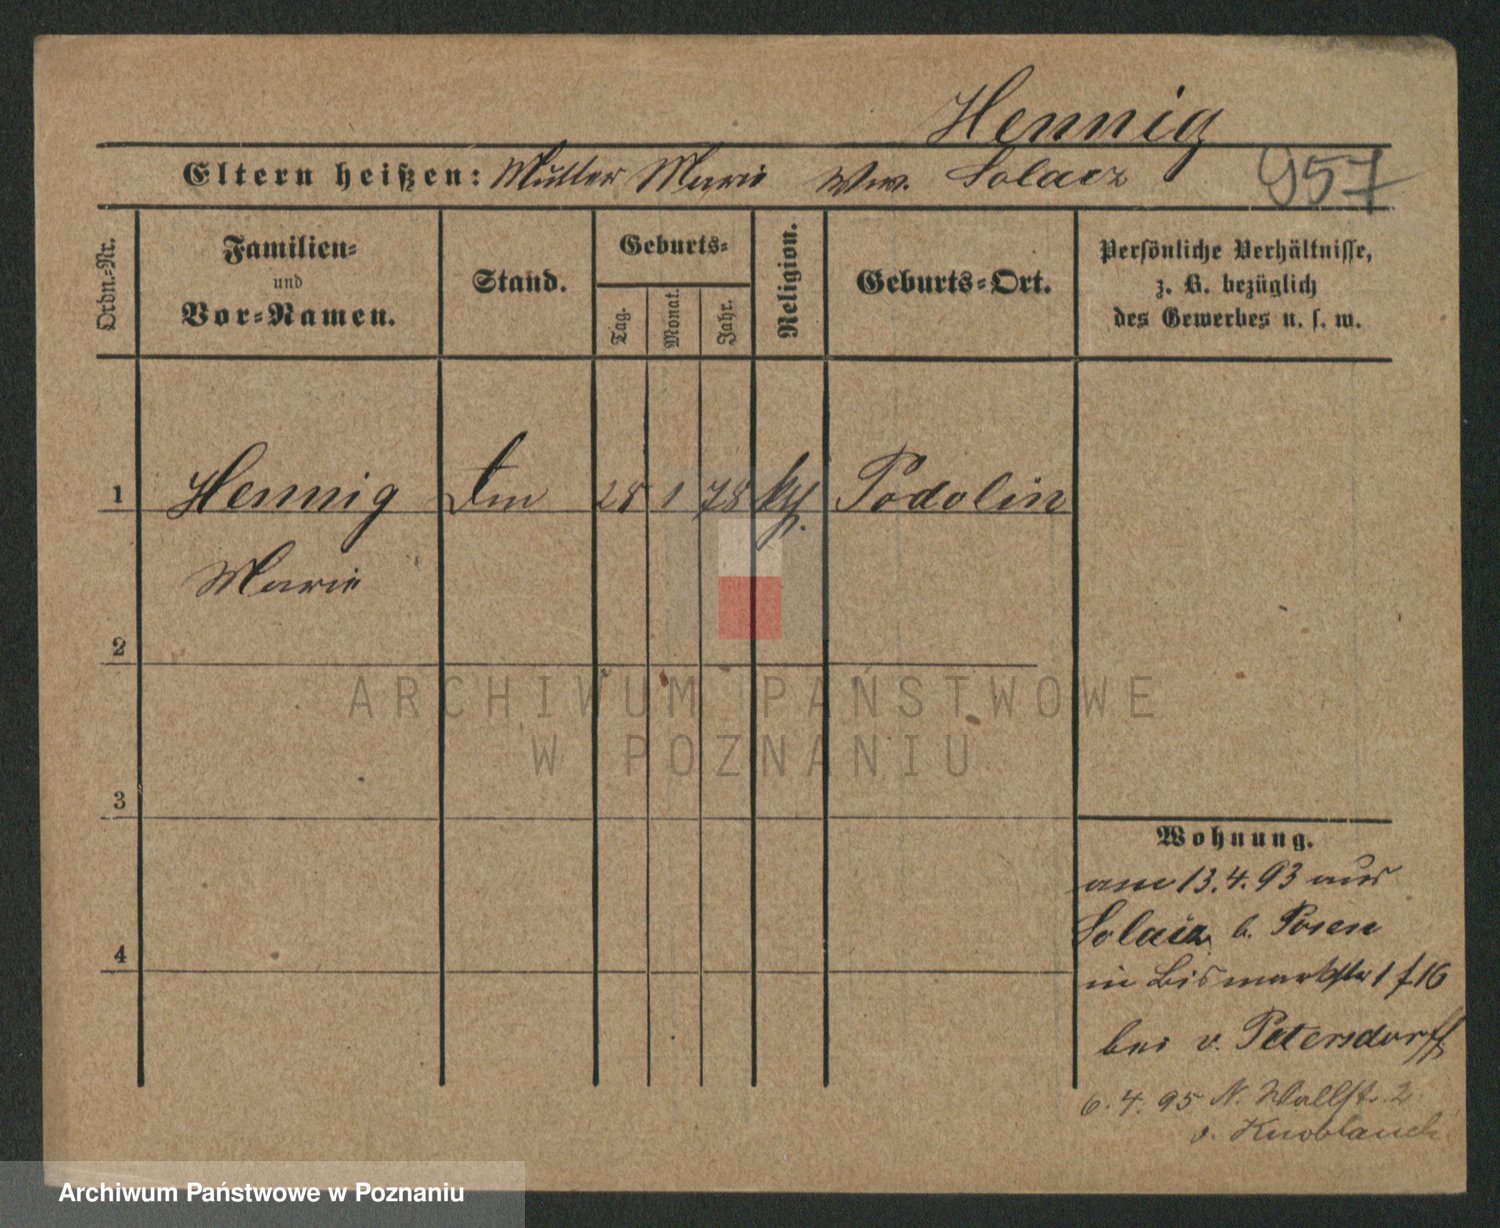 Hennig
Eltern heißen: Mutter Marie Ww. Solacz
957
Ordn.-Nr.
Familien-
und
Vor-Namen.
Stand.
Geburts-
Tag.
Monat.
Jahr.
Religion.
Geburts-Ort.
Persönliche Verhältnisse,
z. B. bezüglich
des Gewerbes u. s. w.
1 Hennig 28 1 78 kth. Podolin
Marie
2
3
4
Wohnung.
am 13.4.93 aus
Solacz b. Posen
in Bismarkstr 1 f 16
bei v. Petersdorff
6.4.95 N. Wallstr. 2
v. Knoblauch
ARCHIWUM PAŃSTWOWE
W POZNANIU
Archiwum Państwowe w Poznaniu